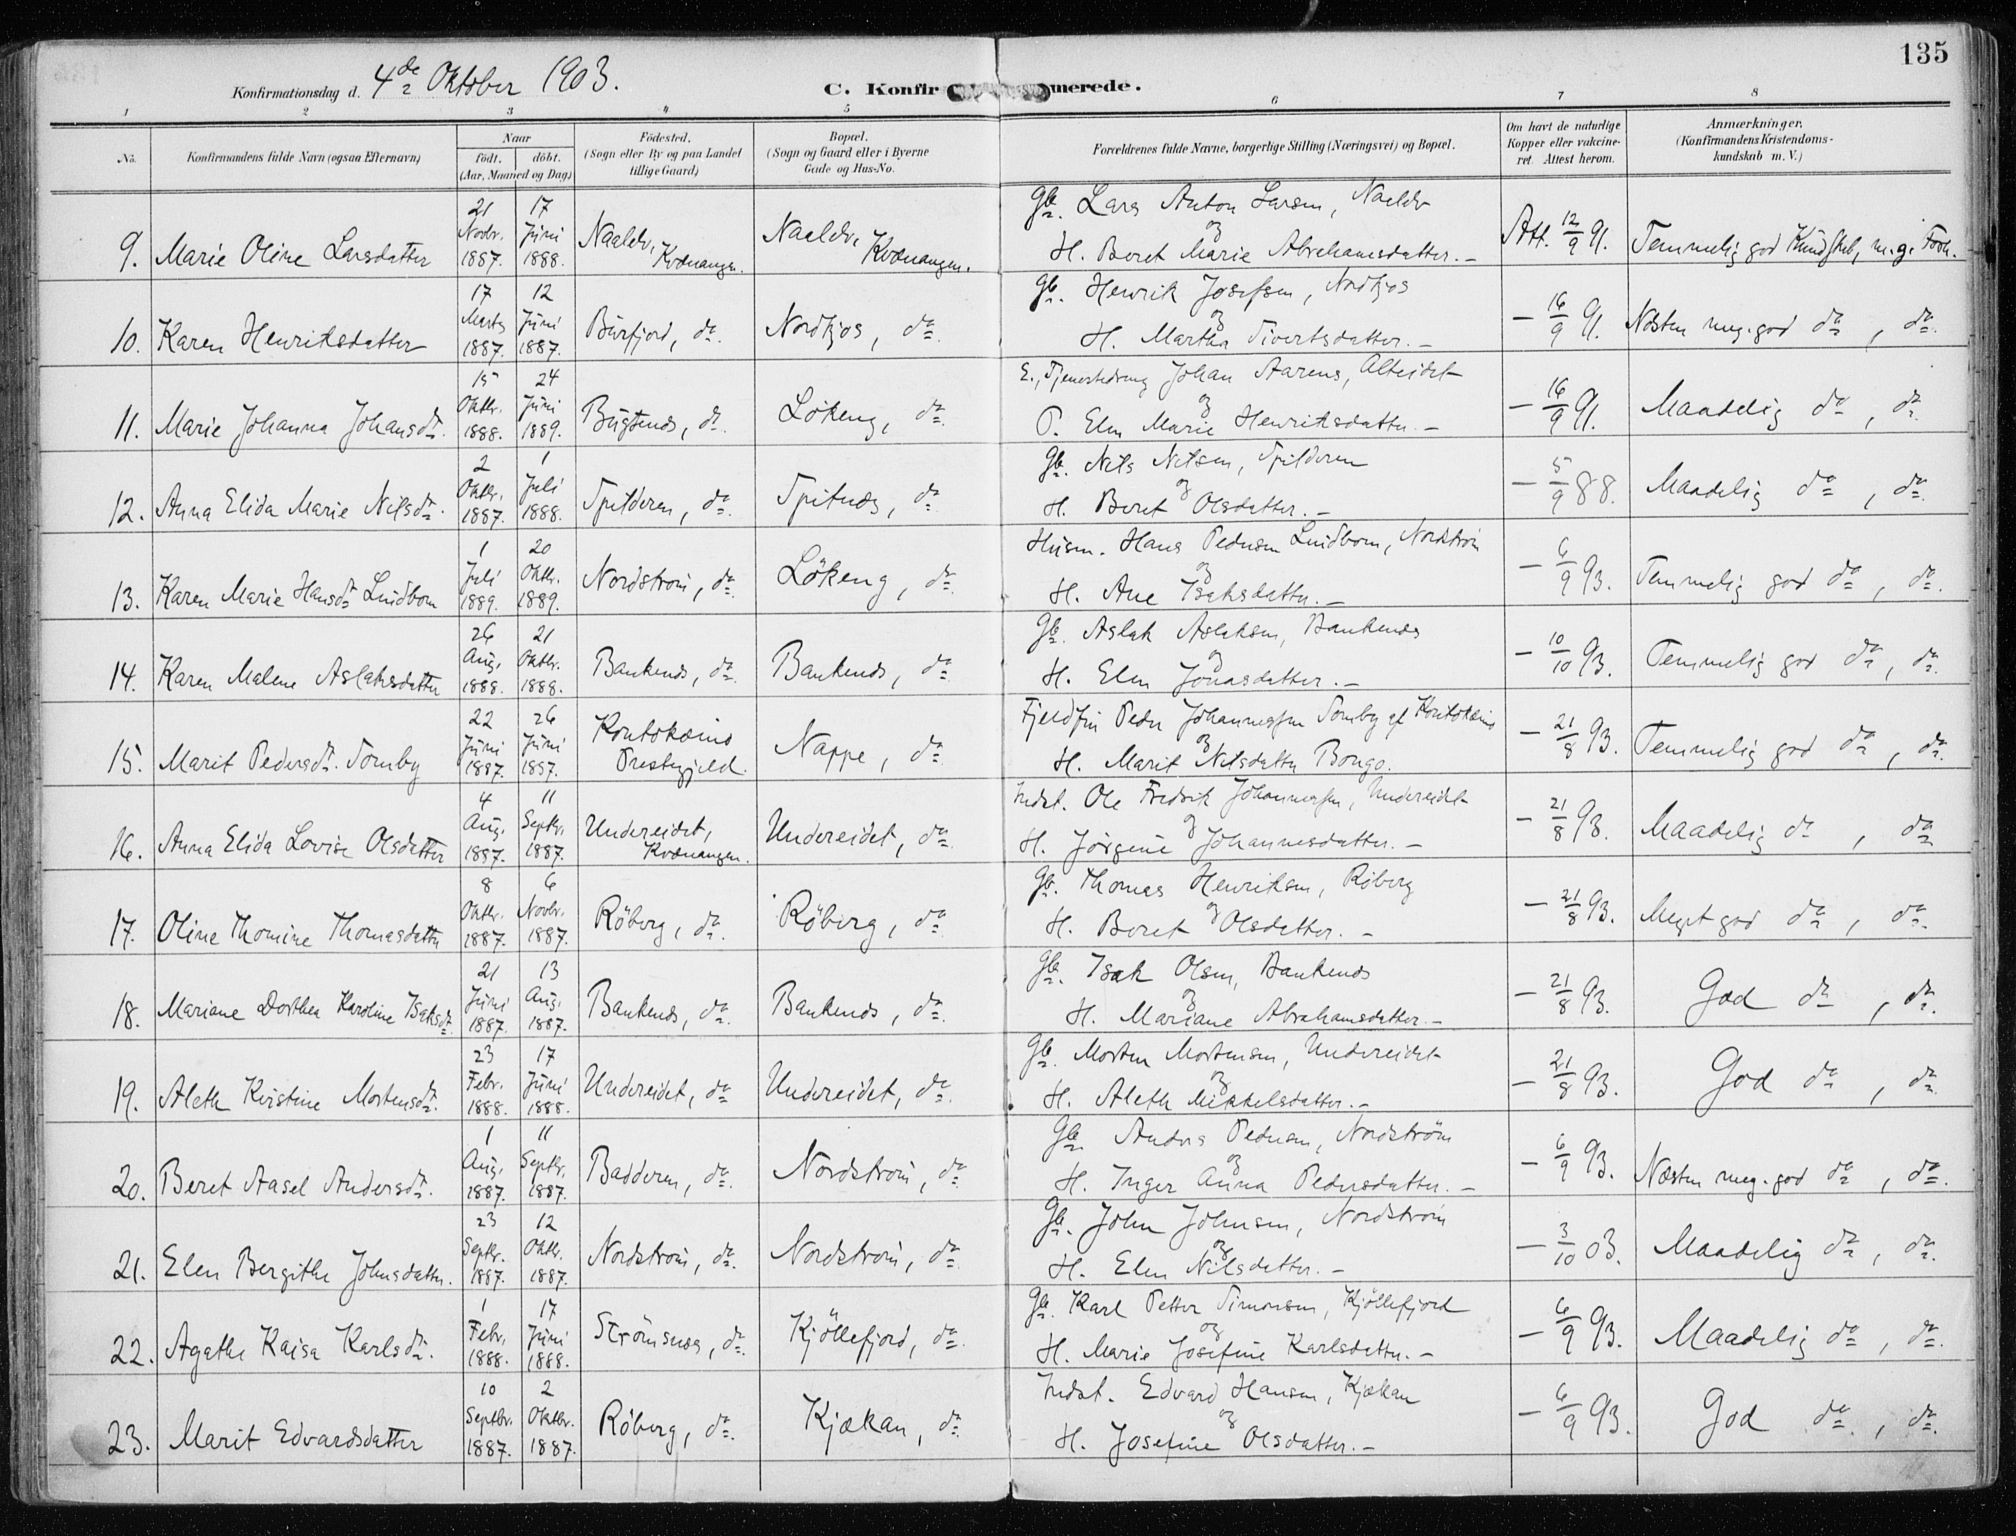 135
Konfirmationsdag d. 4de Oktober 1903.
C. Konfir merede.
1 2 3 4 5 6 7 8
No. Konfirmandens fulde Navn (ogsaa Efternavn) Naar födt. döbt. (Aar, Maaned og Dag) Födested. (Sogn eller By og paa Landet tillige Gaard) Bopæl. (Sogn og Gaard eller i Byerne Gade og Hus-No. Forældrenes fulde Navne, borgerlige Stilling (Næringsvei) og Bopæl. Om havt de naturlige Kopper eller vakcineret. Attest herom. Anmærkninger. (Konfirmandens Kristendomskundskab m. V.)
9. Marie Oline Larsdatter 21 Novbr. 1887. 17 Juni 1888. Naaldv, Kvænangen. Naaldv, Kvænangen. Gb. Lars Anton Larsen, Naaldv
og
H. Beret Marie Abrahamsdatter. – Att. 12/9 91. Temmelig god Kundskab, m. g. Forh.
10. Karen Henriksdatter 17 Marts 1887. 12 Juni 1887. Burfjord, do. Nordkjos, do. Gb. Henrik Josefsen, Nordkjos
og
H. Martha Sivertsdatter. – – 16/9 91. Næsten meg. god do, do.
11. Marie Johanna Johansdtr. 15 Oktbr. 1888. 24 Juni 1889. Bugtenes, do. Lökeng, do. E., Tjenestedreng Johan Aarens, Alteidet
og
P. Elen Marie Henriksdatter. – – 16/9 91. Maadelig do, do.
12. Anna Elida Marie Nilsdtr. 2 Oktbr. 1887. 1 Juli 1888. Spilderen, do. Spitnes, do. Gb. Nils Nilsen, Spilderen
og
H. Beret Olsdatter. – – 5/9 88. Maadelig do, do.
13. Karen Marie Hansdtr Lindbom 1 Juli 1889. 20 Oktbr. 1889. Nordström, do. Lökeng, do. Husm. Hans Pedersen Lindbom, Nordström
og
H. Ane Isaksdatter. – – 6/9 93. Temmelig god do, do.
14. Karen Malene Aslaksdatter 26 Aug. 1888. 21 Oktbr. 1888. Bankenes, do. Bankenes, do. Gb. Aslak Aslaksen, Bankenes
og
H. Elen Jonasdatter. – – 10/10 93. Temmelig god do, do.
15. Marit Pedersdtr. Somby 22 Juni 1887. 26 Juni 1887. Koutokeino Prestegjeld. Nappe, do. Fjeldfin Peder Johannessen Somby af Koutokeino
og
H. Marit Nilsdatter Bongo. – 21/8 93. Temmelig god do, do.
16. Anna Elida Lovise Olsdatter 4 Aug. 1887. 11 Septbr. 1887. Undereidet, Kvænangen. Undereidet, do. Indst. Ole Fredrik Johannessen, Undereidet
og
H. Jørgine Johannesdatter. – – 21/8 93. Maadelig do, do
17. Oline Thomine Thomasdatter 8 Oktbr. 1887. 6 Novbr. 1887. Röberg, do. Röberg, do. Gb. Thomas Henriksen, Röberg
og
H. Beret Olsdatter. – – 21/8 93. Meget god do, do.
18. Mariane Dorthea Karoline Isaksdtr. 21 Juni 1887. 13 Aug. 1887. Bankenes, do. Bankenes, do. Gb. Isak Olsen, Bankenes
og
H. Mariane Abrahamsdatter. – – 21/8 93. God do, do.
19. Aleth Kristine Mortensdtr. 23 Febr. 1888. 17 Juni 1888. Undereidet, do. Undereidet, do. Gb. Morten Mortensen, Undereidet
og
H. Aleth Mikkelsdatter. – – 21/8 93. God do, do.
20. Beret Aasel Andersdtr. 1 Aug. 1887. 11 Septbr. 1887. Badderen, do. Nordström, do. Gb. Anders Pedersen, Nordström
og
H. Inger Anna Pedersdatter. – – 6/9 93. Næsten meg. god do, do.
21. Elen Bergithe Johnsdatter. 23 Septbr. 1887. 12 Oktbr. 1887. Nordström, do. Nordström, do. Gb. John Johnsen, Nordström
og
H. Elen Nilsdatter. – – 3/10 03. Maadelig do, do.
22. Agathe Kaisa Karlsdtr. 1 Febr. 1888. 17 Juni 1888. Strömsnes, do. Kjöllefjord, do. Gb. Karl Petter Simonsen, Kjöllefjord
og
H. Marie Josefine Karlsdatter. – – 6/9 93. Maadelig do, do.
23. Marit Edvardsdatter 10 Septbr. 1887. 2 Oktbr. 1887. Röberg, do. Kjækan, do. Indst. Edvard Hansen, Kjækan
og
H. Josefine Olsdatter. – – 6/9 93. God do., do.